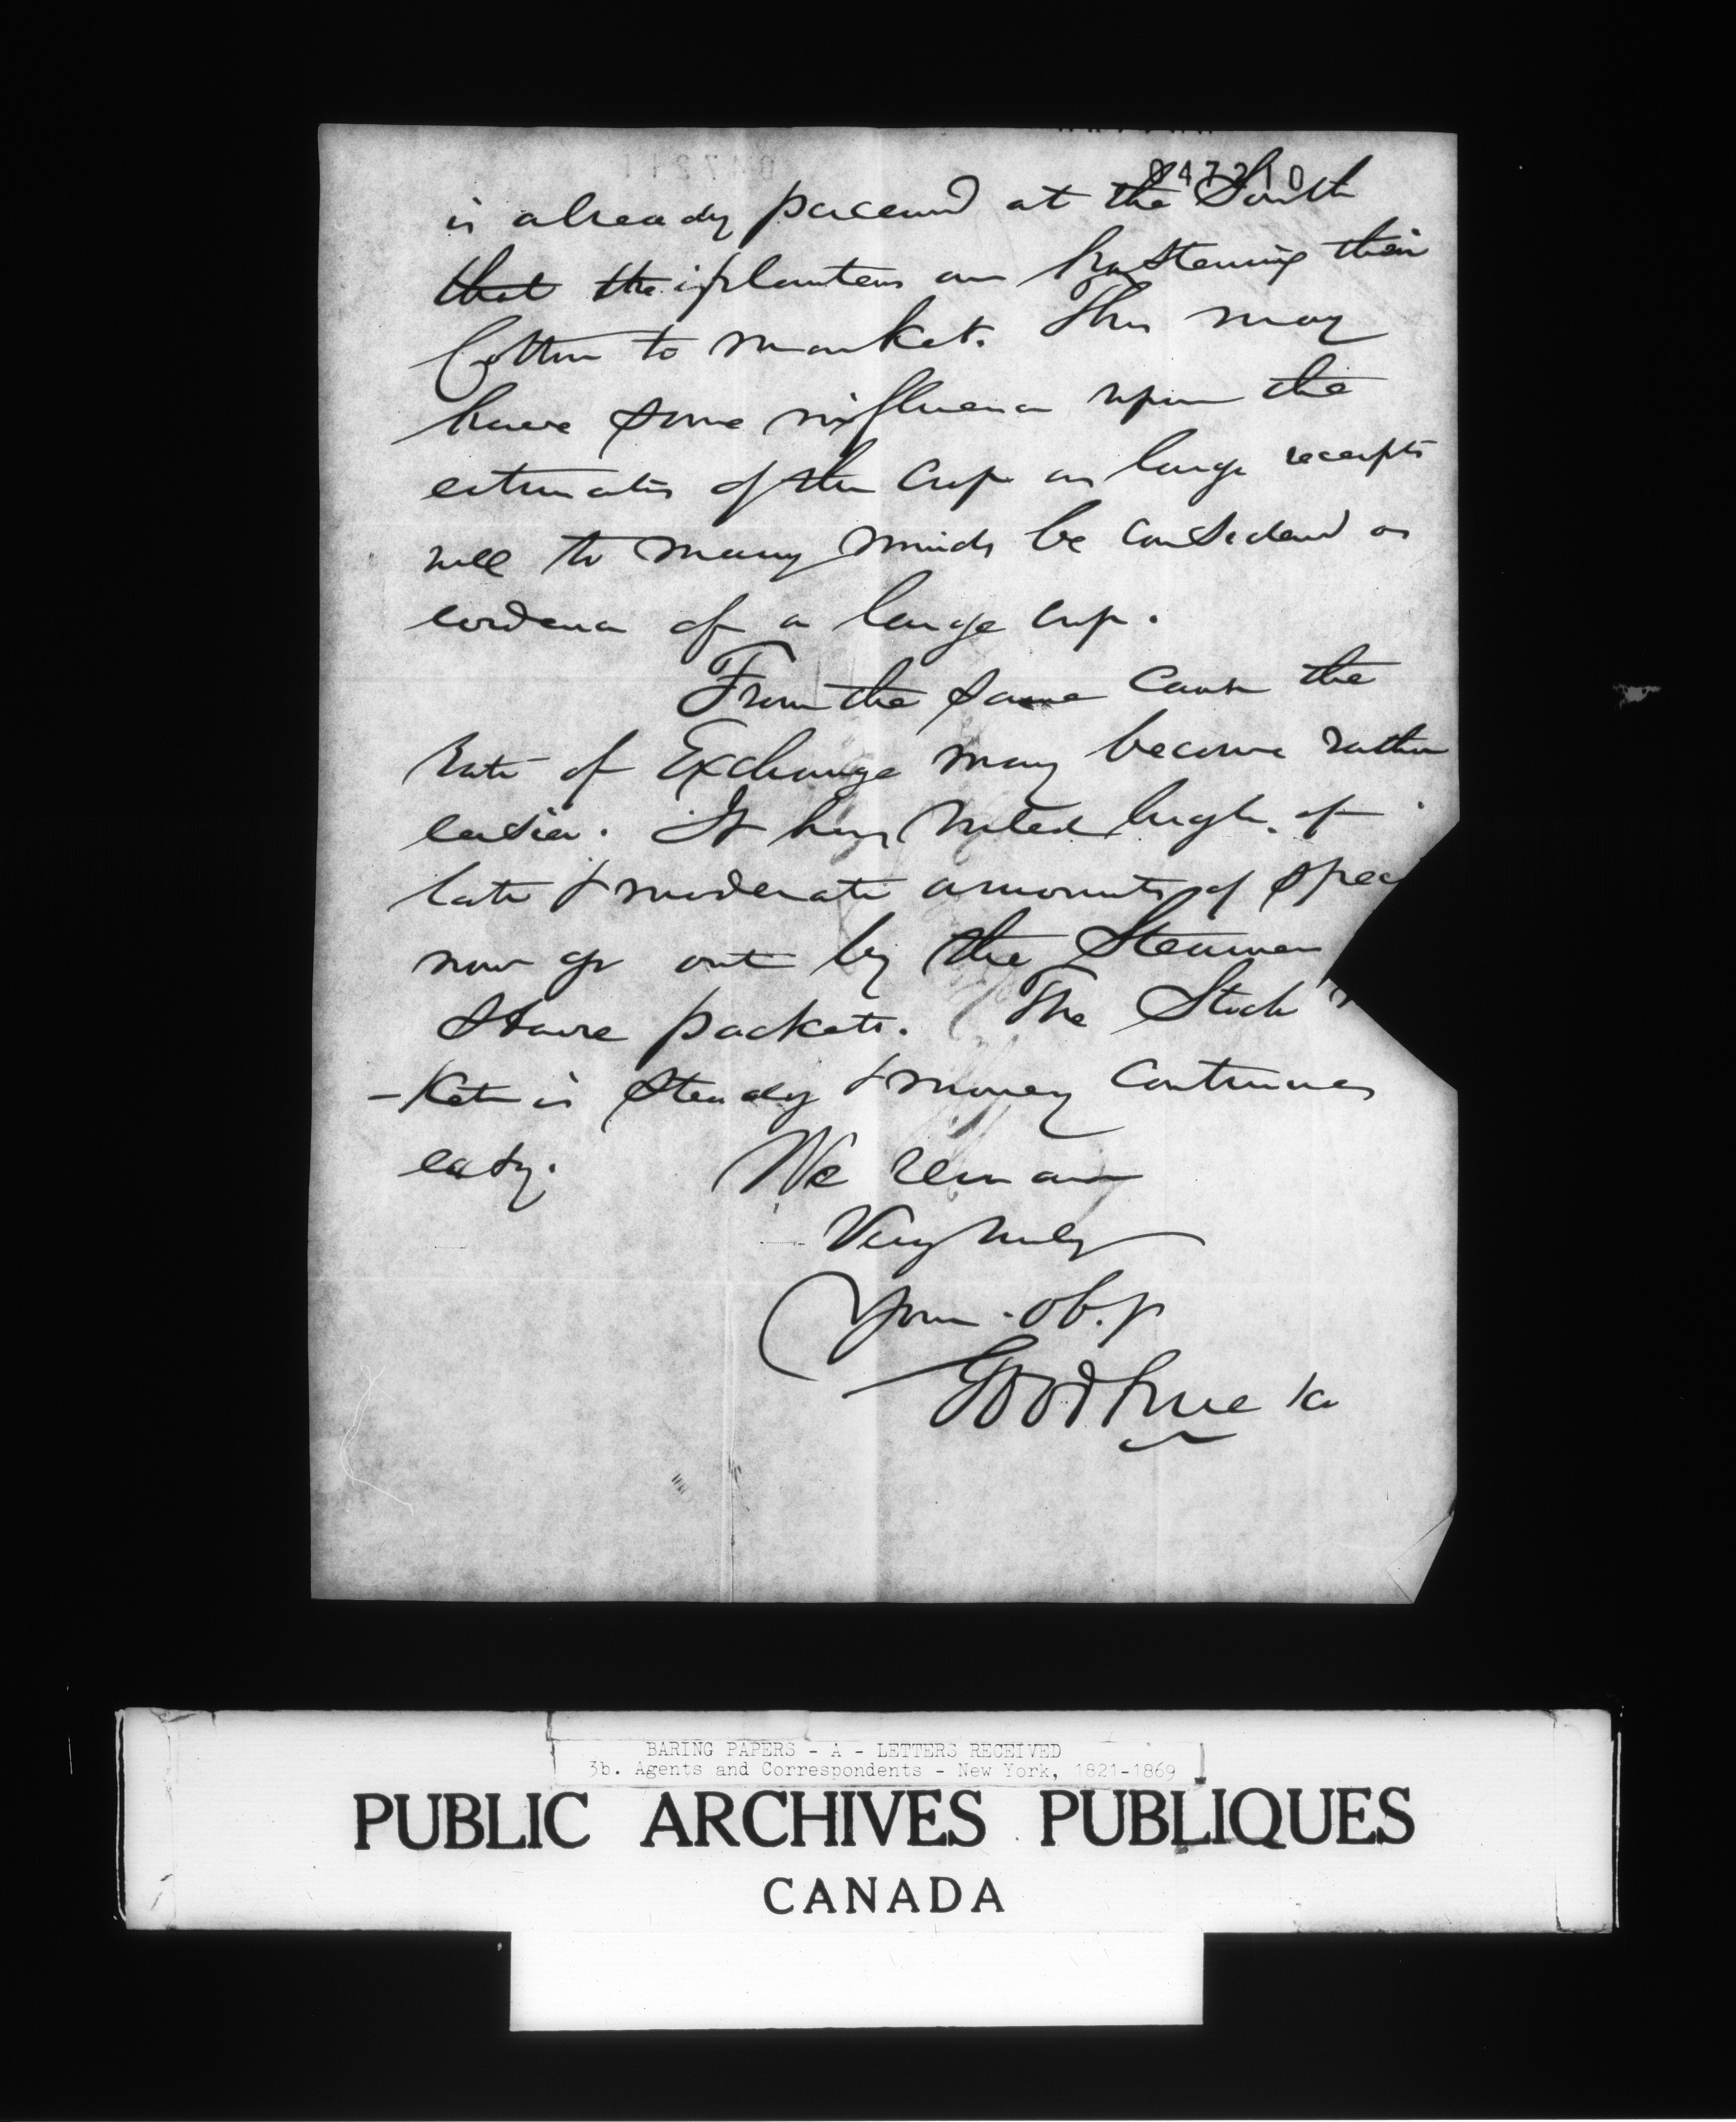 047210
is already perceived at the South
that the planters are hastening their
Cotton to market. This may
have some influence upon the
estimates of the Crop as large receipts
will to many minds be considered as
evidence of a large crop.
From the same cause the
Rate of Exchange may become rather
easier. It has ruled high of
late & moderate amounts of spec
now go out by the Steamers
& Havre packets. The Stock
-ket is steady & money continues
easy. We remain
Very truly
Your ob.
Goodhue & Co
BARING PAPERS - A - LETTERS RECEIVED
3b. Agents and Correspondents - New York, 1821-1869
PUBLIC ARCHIVES PUBLIQUES
CANADA